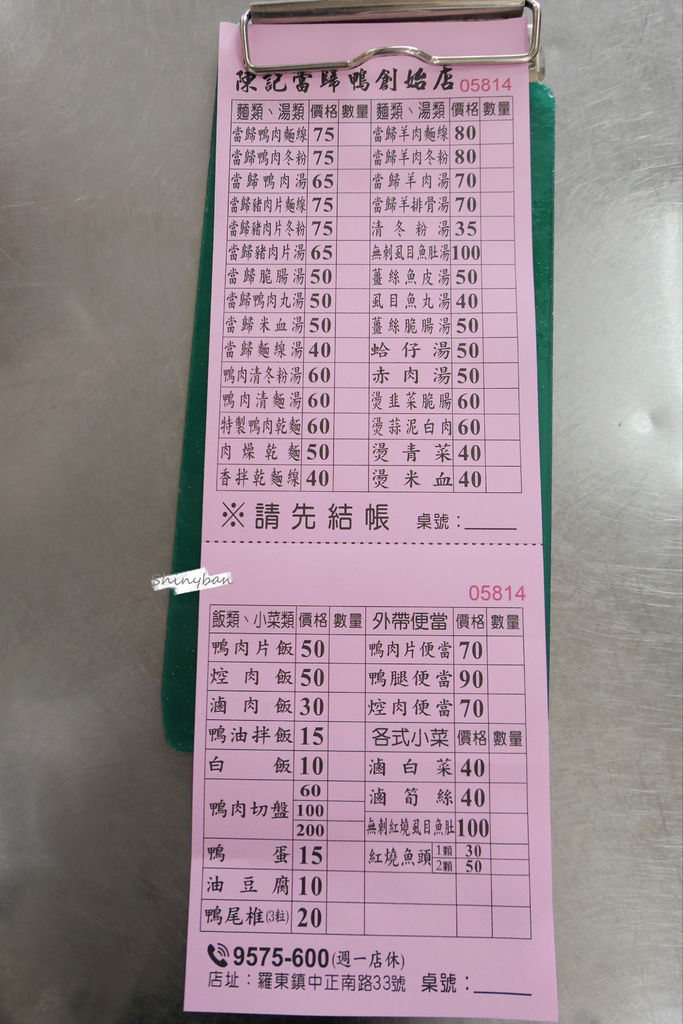 陳記當歸鴨創始店 05814
麵類、湯類 價格 數量 麵類、湯類 價格 數量
當歸鴨肉麵線 75 當歸羊肉麵線 80
當歸鴨肉冬粉 75 當歸羊肉冬粉 80
當歸鴨肉湯 65 當歸羊肉湯 70
當歸豬肉片麵線 75 當歸羊排骨湯 70
當歸豬肉片冬粉 75 清冬粉湯 35
當歸豬肉片湯 65 無刺虱目魚肚湯 100
當歸脆腸湯 50 薑絲魚皮湯 50
當歸鴨肉丸湯 50 虱目魚丸湯 40
當歸米血湯 50 薑絲脆腸湯 50
當歸麵線湯 40 蛤仔湯 50
鴨肉清冬粉湯 60 赤肉湯 50
鴨肉清麵湯 60 燙韭菜脆腸 60
特製鴨肉乾麵 60 燙蒜泥白肉 60
肉燥乾麵 50 燙青菜 40
香拌乾麵線 40 燙米血 40
※請先結帳 桌號：
Shinyban
05814
飯類、小菜類 價格 數量 外帶便當 價格 數量
鴨肉片飯 50 鴨肉片便當 70
焢肉飯 50 鴨腿便當 90
滷肉飯 30 焢肉便當 70
鴨油拌飯 15 各式小菜 價格 數量
白飯 10 滷白菜 40
鴨肉切盤 60 100 200 滷筍絲 40
無刺紅燒虱目魚肚 100
鴨蛋 15 紅燒魚頭 1顆 30 2顆 50
油豆腐 10
鴨尾椎(3粒) 20
9575-600(週一店休)
店址：羅東鎮中正南路33號 桌號：